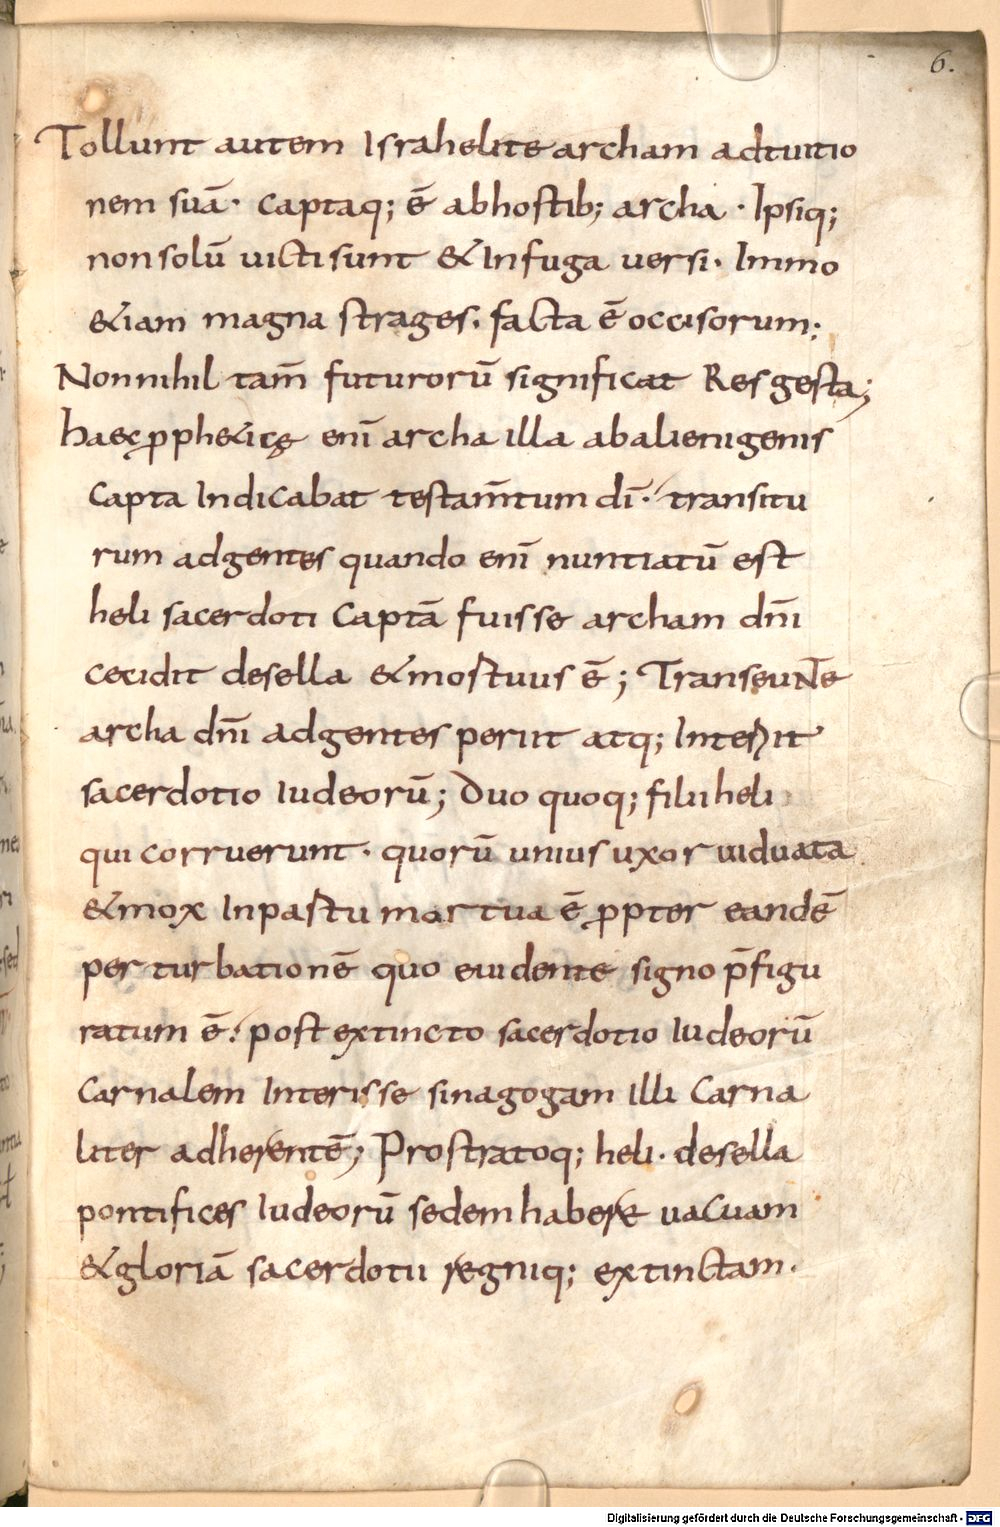 6.
Tollunt autem Israhelite archam adtuitio
nem suā· captaq; ē abhostib; archa· Ipsiq;
non solū uicti sunt & In fuga uersi· Immo
&iam magna strages· facta ē occisorum;
Non nihil tam̄ futurorū significat Res gesta;
haec pphȩtice enī archa illa abalienigenis
capta Indicabat testam̄tum dī· transitu
rum adgentes quando enī nuntiatū est
heli sacerdoti captā fuisse archam dn̄i
cecidit desella & mostuus ē; Transeunte
archa dn̄i adgentes periit atq; Interiit
sacerdotio Iudeorū; Duo quoq; filii heli
qui corruerunt· quorū unius uxor uiduata
& mox In pastu mortua ē ꝓpter eandē
perturbationē quo euidente signo p̄figu
ratum ē· post extincto sacerdotio Iudeorū
carnalem Interisse sinagogam illi carna
liter adherentē; Prostratoq; heli· desella
pontifices Iudeorū sedem habere uacuam
& gloriā sacerdotii regniq; extinctam·
Digitalisierung gefördert durch die Deutsche Forschungsgemeinschaft - DFG